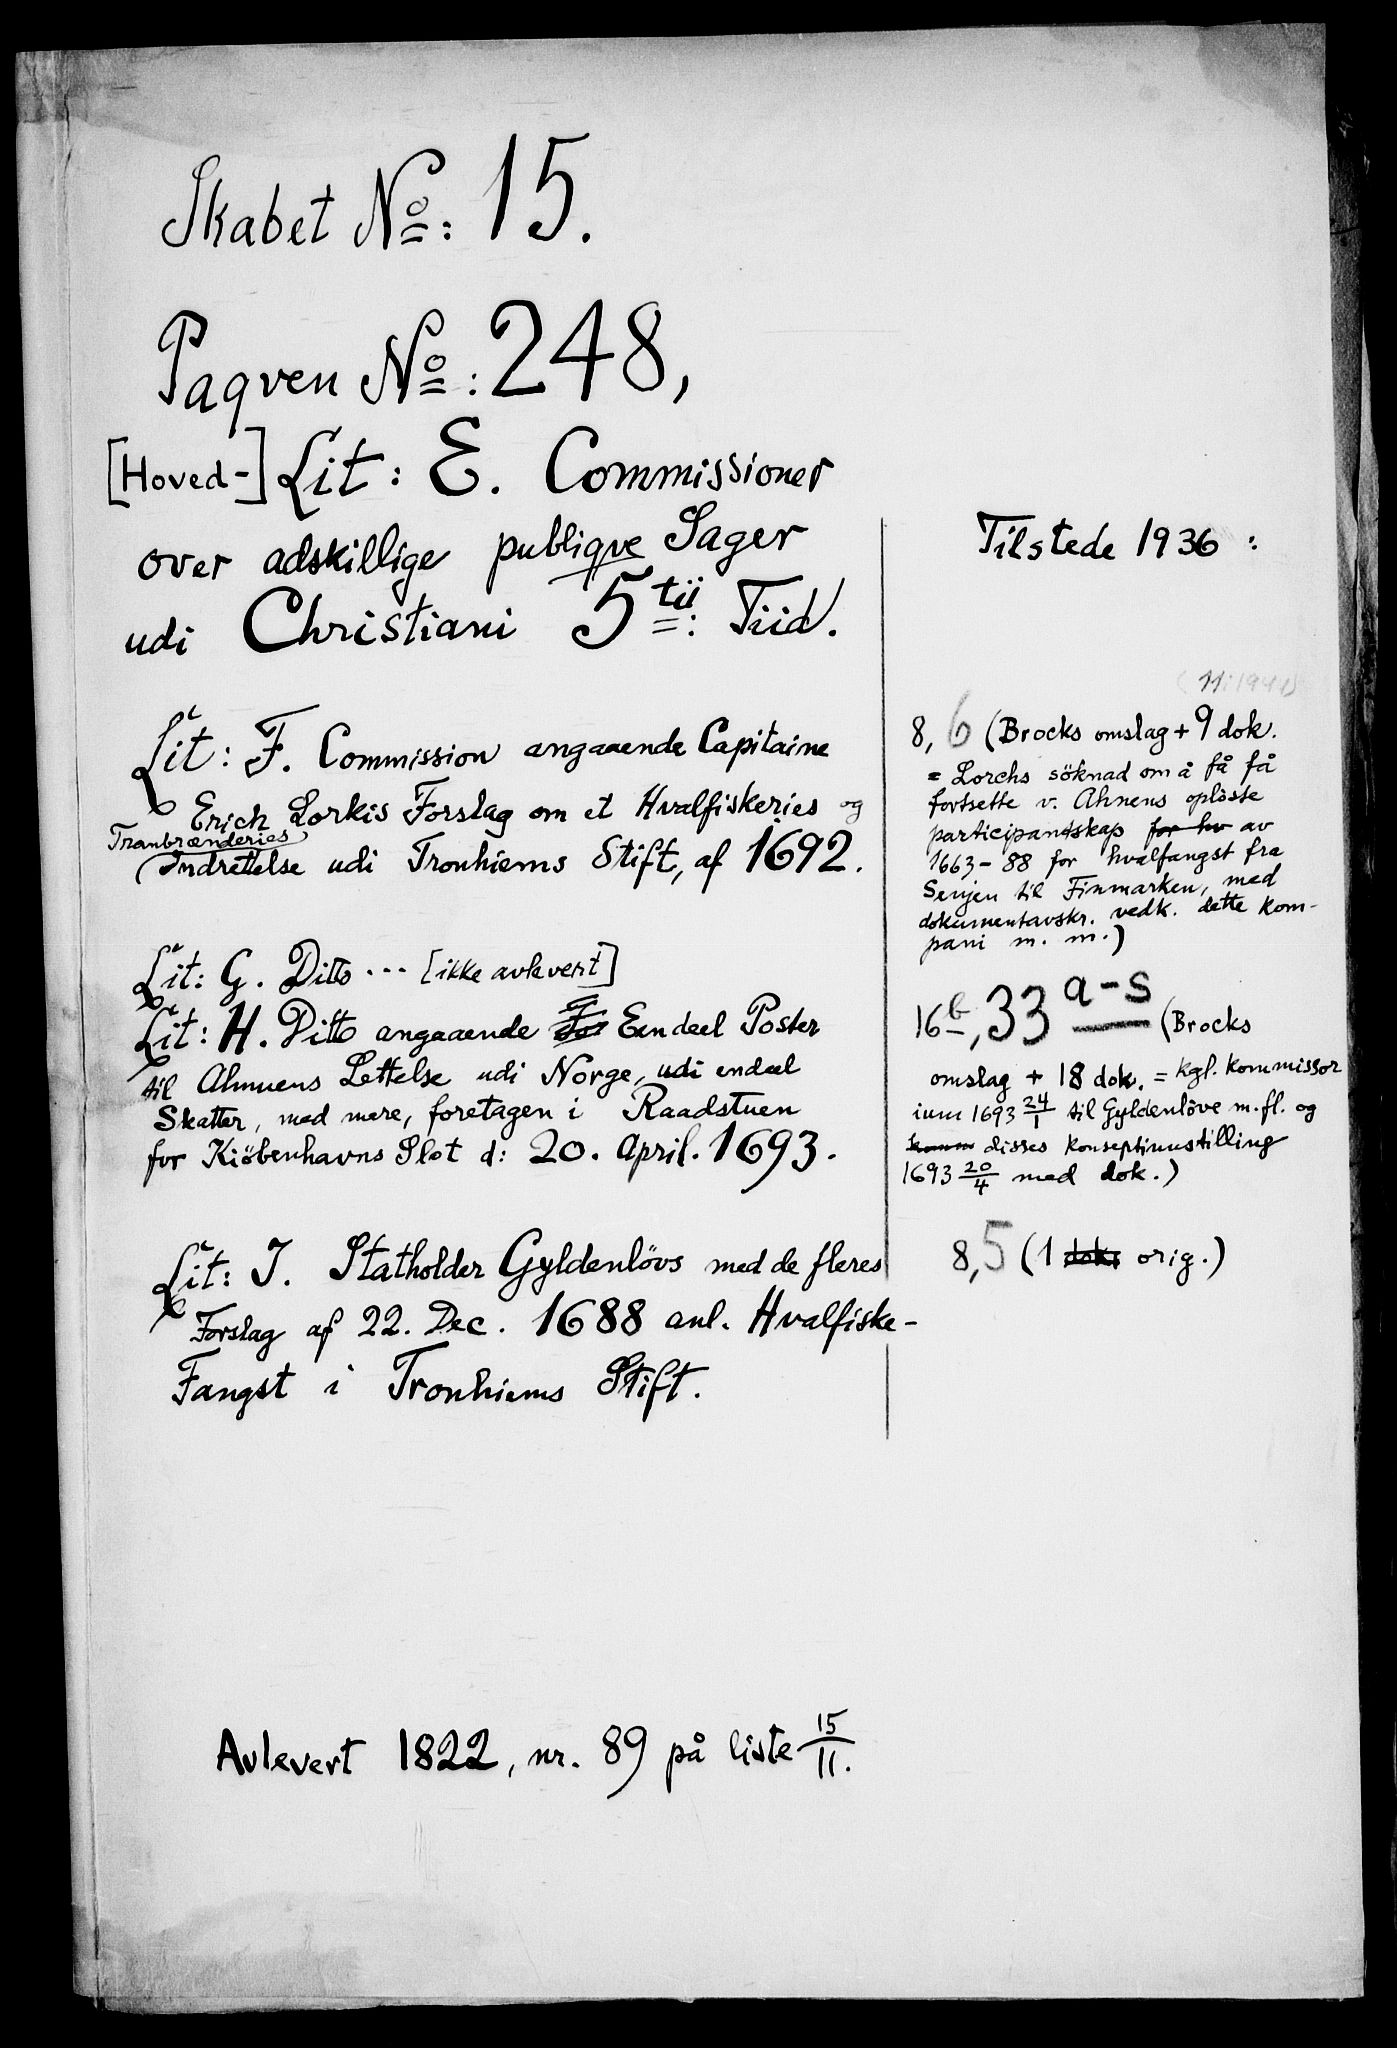 Skabet No: 15.
Paqven No: 248,
[Hoved-] Lit: E. Commissioner
over adskillige publiqve Sager
udi Christiani 5tii: Tiid.
Lit: F. Commission angaaende Capitaine
Erich Lorkis Forslag om et Hvalfiskeries og
Tranbrænderies
Indrettelse udi Tronhiems Stift, af 1692.
Lit: G. Ditto ... [ikke avlevert]
Lit: H. Ditto angaaende Een deel Poster
til Almuens Lettelse udi Norge, udi endeel
Skatter, med mere, foretagen i Raadstuen
for Kiöbenhavns Slot d: 20. April. 1693.
Lit: I. Statholder Gyldenlövs med de fleres
Forslag af 22. Dec. 1688 anl. Hvalfiske-
Fangst i Tronhiems Stift.
Avlevert 1822, nr. 89 på liste 15/11.
Tilstede 1936:
8, 6 (Brocks omslag + 9 dok.
= Lorchs söknad om å få få
fortsette v. Ahnens oplöste
participantskap for hv av
1663-88 for hvalfangst fra
Senjen til Finmarken, med
dokumentavskr. vedk. dette kom-
pani m. m.)
16b, 33 a-s (Brocks
omslag + 18 dok. = kgl. kommissor
ium 1693 24/1 til Gyldenlöve m.fl. og
disses konseptinnstilling
1693 20/4 med dok.)
8, 5 (1 dok. orig.)